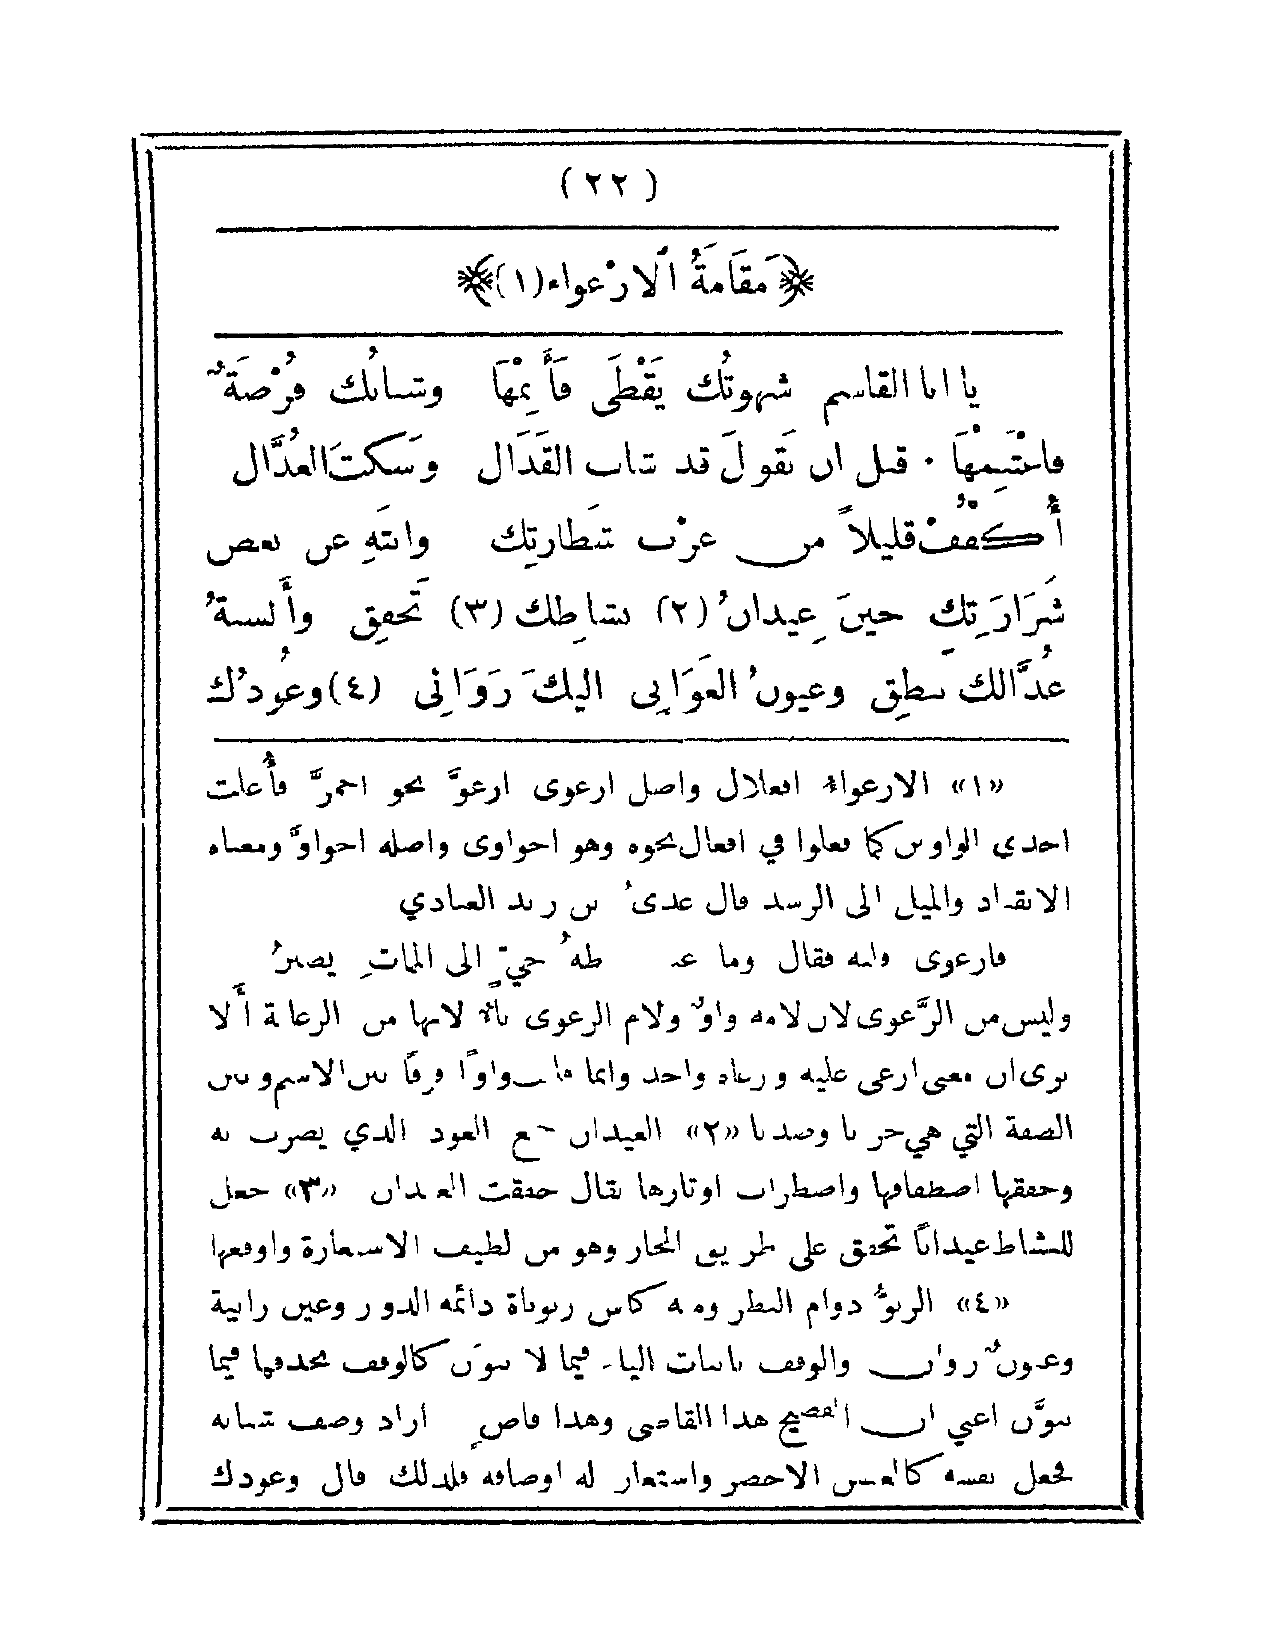 ( ٢٢ )
﴿ مَقَامَةُ الارْعواء(١) ﴾
يا ابا القاسم شهوتُك يَقْظَى فَأَنِمْهَا وشبابُك فُرْصَةٌ
فاغْتَنِمْهَا ٠ قبل ان تَقولَ قد شاب القَذَال وسَكَتَ العُذَّال
أُكْفُفْ قليلاً من غرْب شَطارتِك وانتَهِ عن بعض
شَرَارَتِك حينَ عِيدانُ (٢) نشاطِك (٣) تَخفِق وأَلسنةُ
عُذَّالك تنطِق وعيونُ الغَوَانِى اليكَ رَوَانِى (٤) وعُودُك
«١» الارعواء افعلال واصل ارعوى ارعوَّ نحو احمرَّ فأعلت
احدى الواوين كما فعلوا في افعال نحوه وهو احواوى واصله احواوَّ ومعناه
الانقياد والميل الى الرشد قال عدىُ بن زيد العبادي
فارعوى قلبه فقال وما غبطةُ حيٍّ الى المماتِ يصيرُ
وليس من الرَّعوى لان لامه واوٌ ولام الرعوى ياءٌ لانها من الرعاية أَلا
ترى ان معنى ارعى عليه ورعاه واحد وانما قلبت واوًا فرقًا بين الاسم وبين
الصفة التي هي خزيا وصديا «٢» العيدان جمع العود الذي يضرب به
وخفقها اصطفاقها واضطراب اوتارها يقال خفقت العيدان «٣» جعل
للنشاط عيدانًا تخفق على طريق المجاز وهو من لطيف الاستعارة واوقعها
«٤» الرنوُّ دوام النظر ومنه كاس رنوناة دائمة الدور وعين رانية
وعيونٌ روان والوقف باثبات الياء فيما لا ينوَّن كالوقف بحذفها فيما
ينوَّن اعني ان الفصيح هذا القاضى وهذا قاضٍ اراد وصف شبابه
فجعل نفسه كالغصن الاخضر واستعار له اوصافه فلذلك قال وعودك